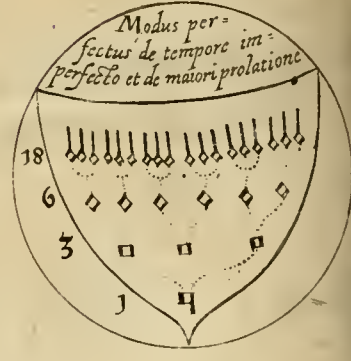 Modus per=
fectus de tempore im=
perfecto et de maiori prolatione
18
6
3
1